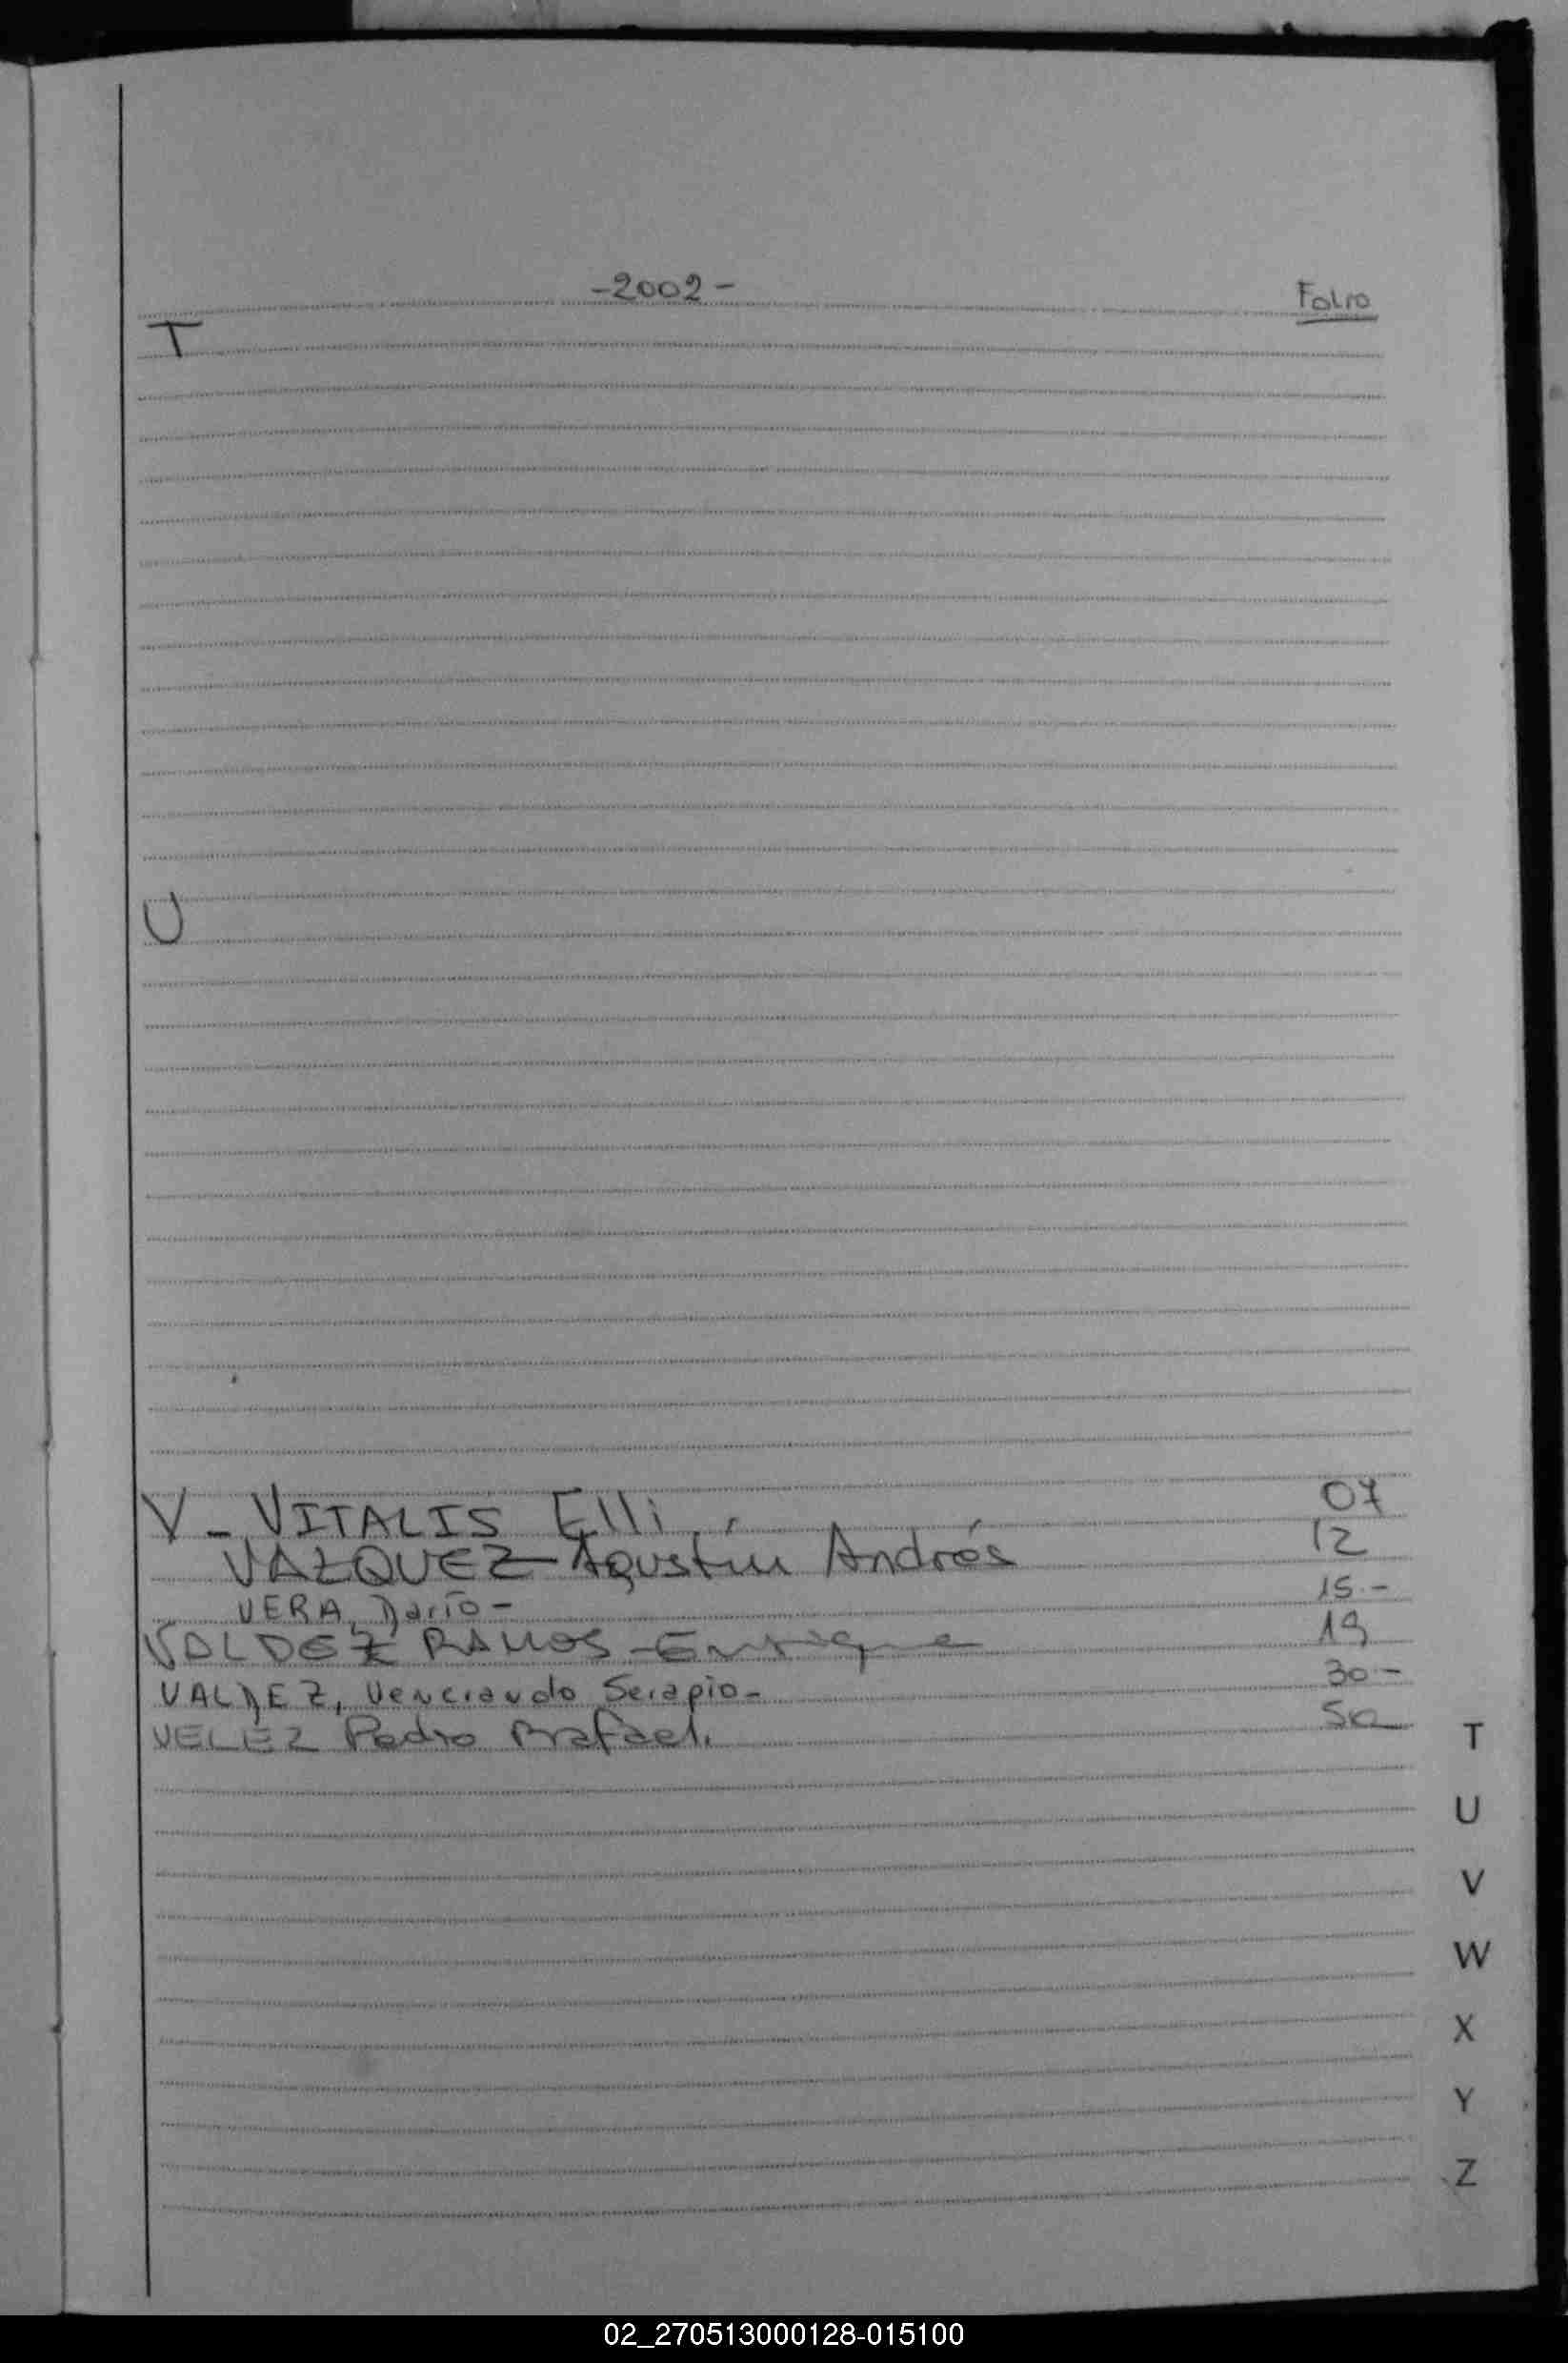 -2002- Folio
T
U
V - VITALIS Elli. 07
VAZQUEZ Agustín Andrés 12
VERA, Darío - 15.-
VALDEZ RAMOS - Enrique 19
VALDEZ, Venerando Serapio- 30.-
VELEZ Pedro Rafael. 50
T
U
V
W
X
Y
Z
02_270513000128-015100